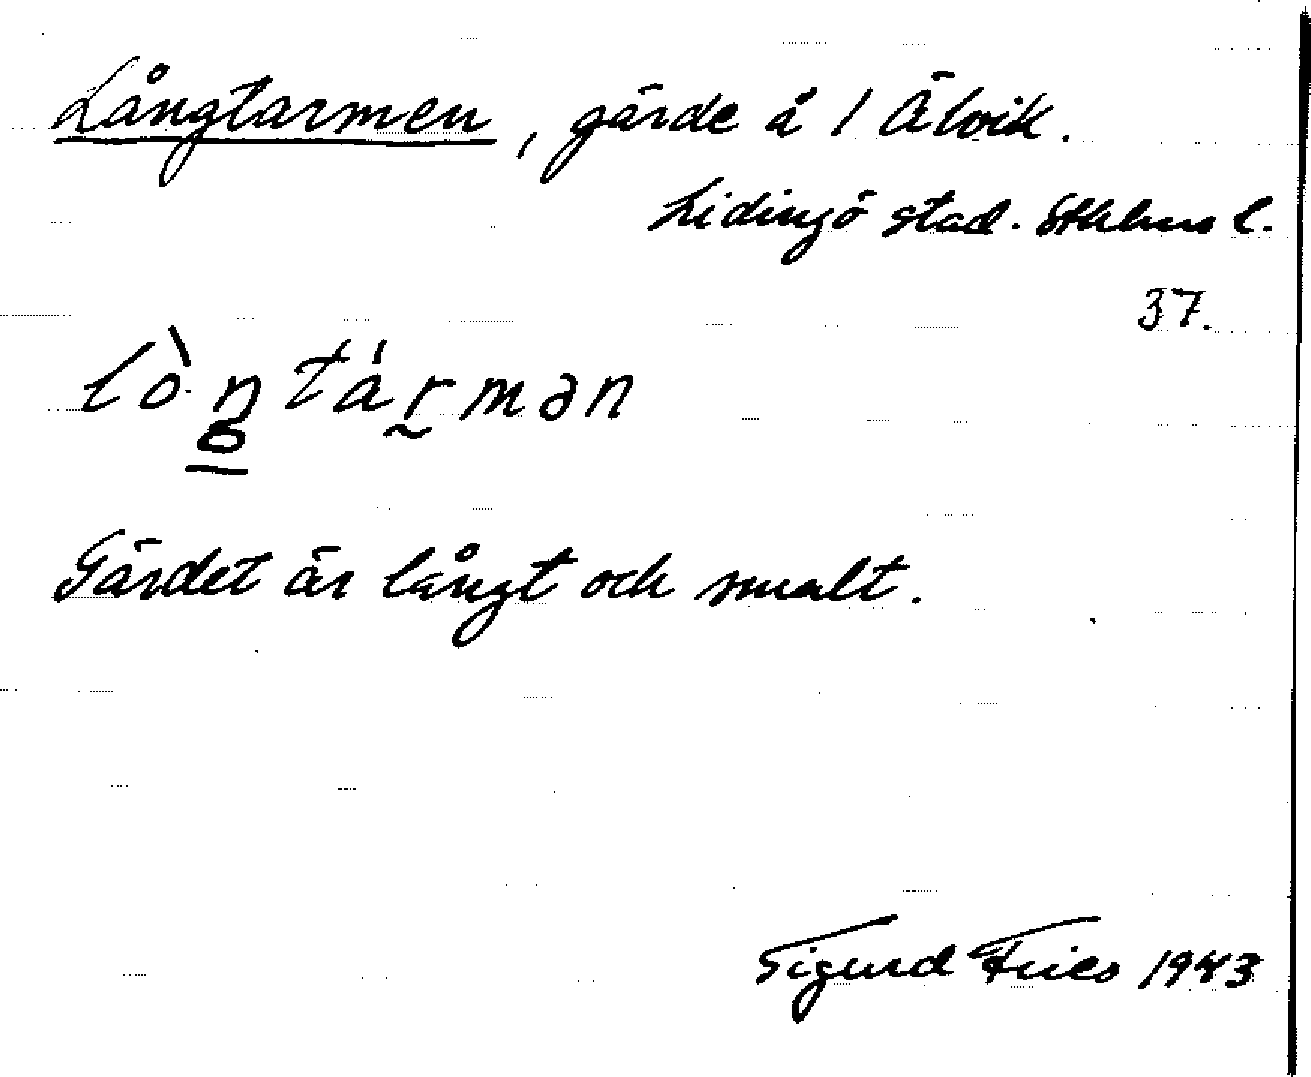 Långtarmen, gärde å 1 Älvik.
Lidingö stad. Sthlms l.
37.
lò·ŋtármən
Gärdet är långt och smalt.
Sigurd Fries 1943